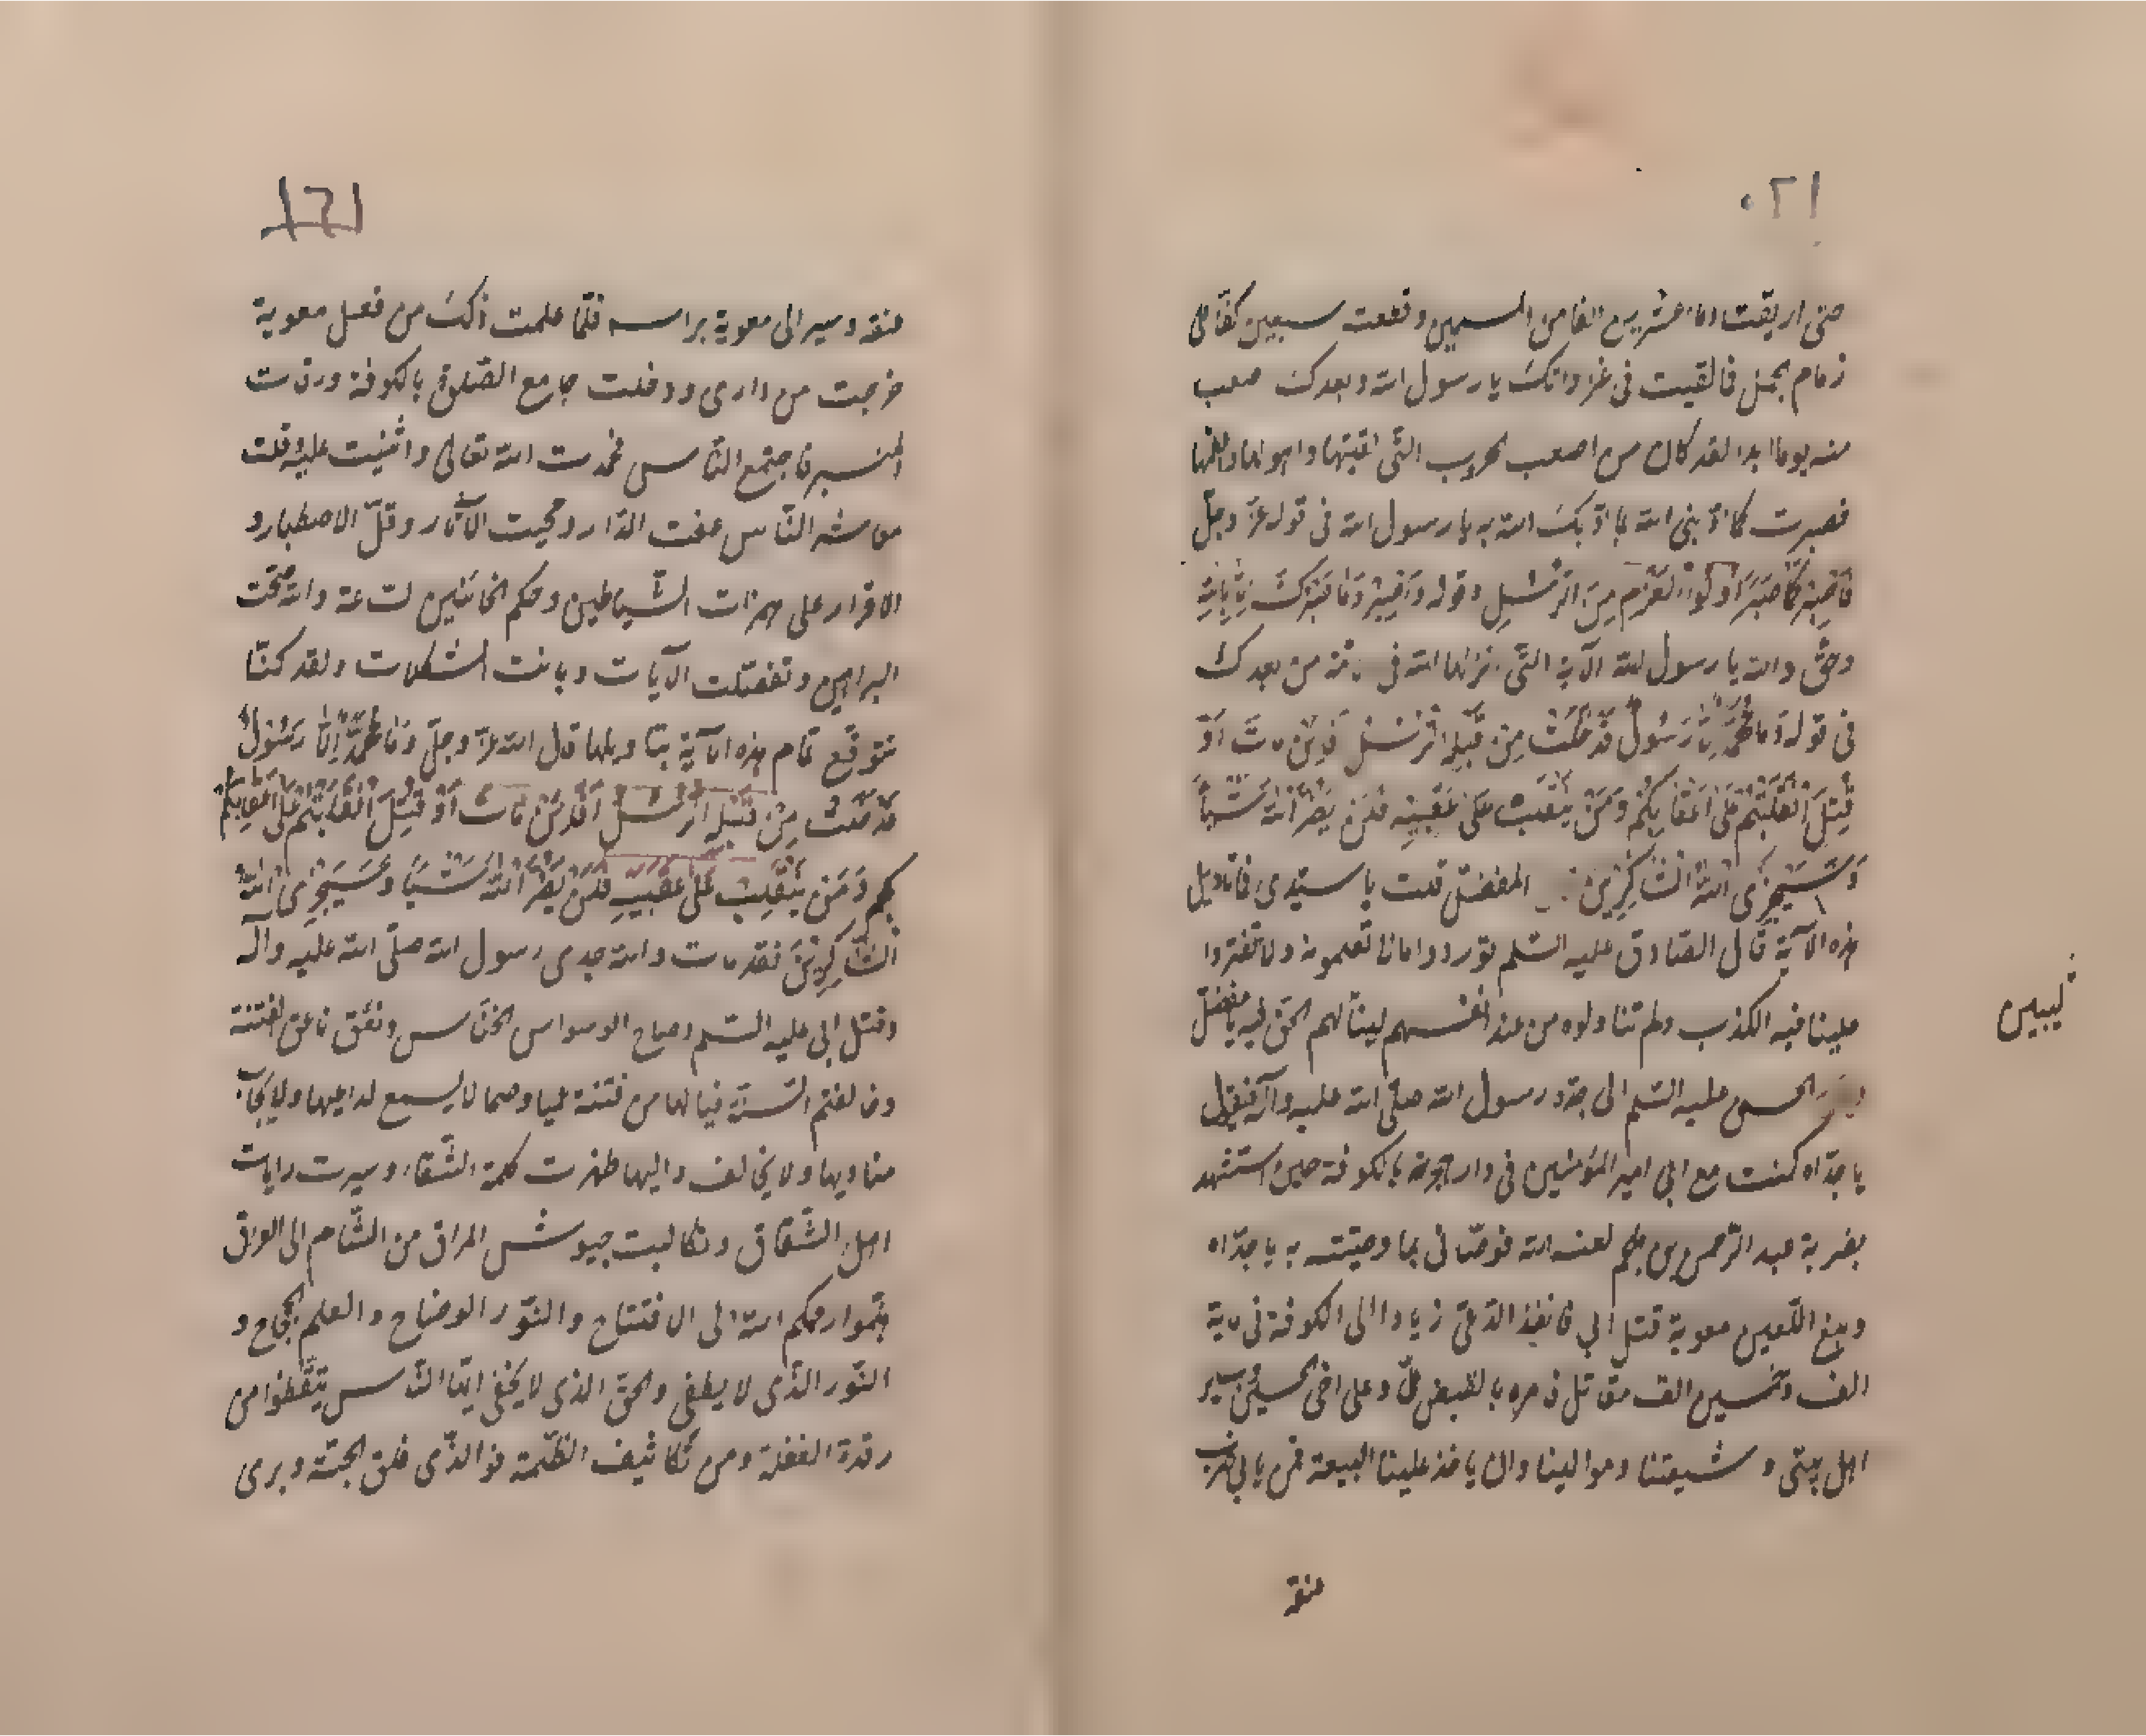 ١٢٠
حتى اريقت دماء عشرين الفا من المسلمين وقطعت سبعين كفا على
زمام الجمل فما لقيت في غزواتك يا رسول الله وبعدك اصعب
منه يوما ابدا لقد كان من اصعب الحروب التي لقيتها واهولها واعظمها
فصبرت كما ادبني الله بما ادبك الله به يا رسول الله في قوله عز وجل
فَاصْبِرْ كَمَا صَبَرَ اُولُوا الْعَزْمِ مِنَ الرُّسُلِ وقوله وَاصْبِرْ وَمَا صَبْرُكَ اِلَّا بِاللّٰهِ
وحق والله يا رسول الله الآية التي انزلها الله في الامة من بعدك
في قوله وَمَا مُحَمَّدٌ اِلَّا رَسُولٌ قَدْ خَلَتْ مِنْ قَبْلِهِ الرُّسُلُ اَفَاِنْ مَاتَ اَوْ
قُتِلَ انْقَلَبْتُمْ عَلٰى اَعْقَابِكُمْ وَمَنْ يَنْقَلِبْ عَلٰى عَقِبَيْهِ فَلَنْ يَضُرَّ اللّٰهَ شَيْئاً
وَسَيَجْزِي اللّٰهُ الشَّاكِرِينَ المفضل قلت يا سيدي فما تاويل
هذه الآية قال الصادق عليه السلم
علينا فيه الكذب ولم تناولوه من عند انفسهم ليبنا لهم الحق فيه يا مفضل
الحسن عليه السلم الى جده رسول الله صلى الله عليه وآله فيقول
يا جداه كنت مع ابي امير المؤمنين في دار هجرته بالكوفة حين استشهد
بضربة عبد الرحمن بن ملجم لعنه الله فوصاني بما وصيته به يا جداه
وبلغ اللعين معوية قتل ابي فانفذ الدعي زيادا الى الكوفة في ماية
الف وخمسين الف مقاتل فامره بالقبض علي وعلى اخي الحسين وساير
اهل بيتي وشيعتنا وموالينا وان ياخذ علينا البيعة فمن يابى ضرب
عنقه
ليبين
١٢١
عنقه وسير الى معوية براسه فلما علمت ذلك من فعل معوية
خرجت من داري ودخلت جامع الصلوة بالكوفة ورقات
المنبر فاجتمع الناس فحمدت الله تعالى واثنيت عليه وقلت
معاشر الناس عفت الديار ومحيت الآثار وقل الاصطبار و
لا قرار على همزات الشياطين وحكم الخائنين الساعة والله صحت
البراهين وتفصلت الآيات وبانت المشكلات ولقد كنا
نتوقع تمام هذه الآية بتاويلها قال الله عز وجل وَمَا مُحَمَّدٌ اِلَّا رَسُولٌ
قَدْ خَلَتْ مِنْ قَبْلِهِ الرُّسُلُ اَفَاِنْ مَاتَ اَوْ قُتِلَ انْقَلَبْتُمْ عَلٰى اَعْقَابِكُمْ
بكم وَمَنْ يَنْقَلِبْ عَلٰى عَقِبَيْهِ فَلَنْ يَضُرَّ اللّٰهَ شَيْئًا وَسَيَجْزِي اللّٰهُ
الشَّاكِرِينَ فقد مات والله جدي رسول الله صلى الله عليه وآله
وقتل ابي عليه السلم وصاح الوسواس الخناس ونعق ناعق الفتنة
وخالفتم السنة فيا لها من فتنة عميا وصما لا يسمع لداعيها ولا يجاب
مناديها ولا يخالف واليها ظهرت كلمة الشقاء وسيرت رايات
اهل الشقاق وتكالبت جيوش المراق من الشام الى العراق
هلموا رحمكم الله الى الافتتاح والنور الوضاح والعلم الجحجاح و
النور الذي لا يطفى والحق الذي لا يخفى ايها الناس تيقظوا من
رقدة الغفلة ومن تكاثيف الظلمة فوالذي فلق الحبة وبرى